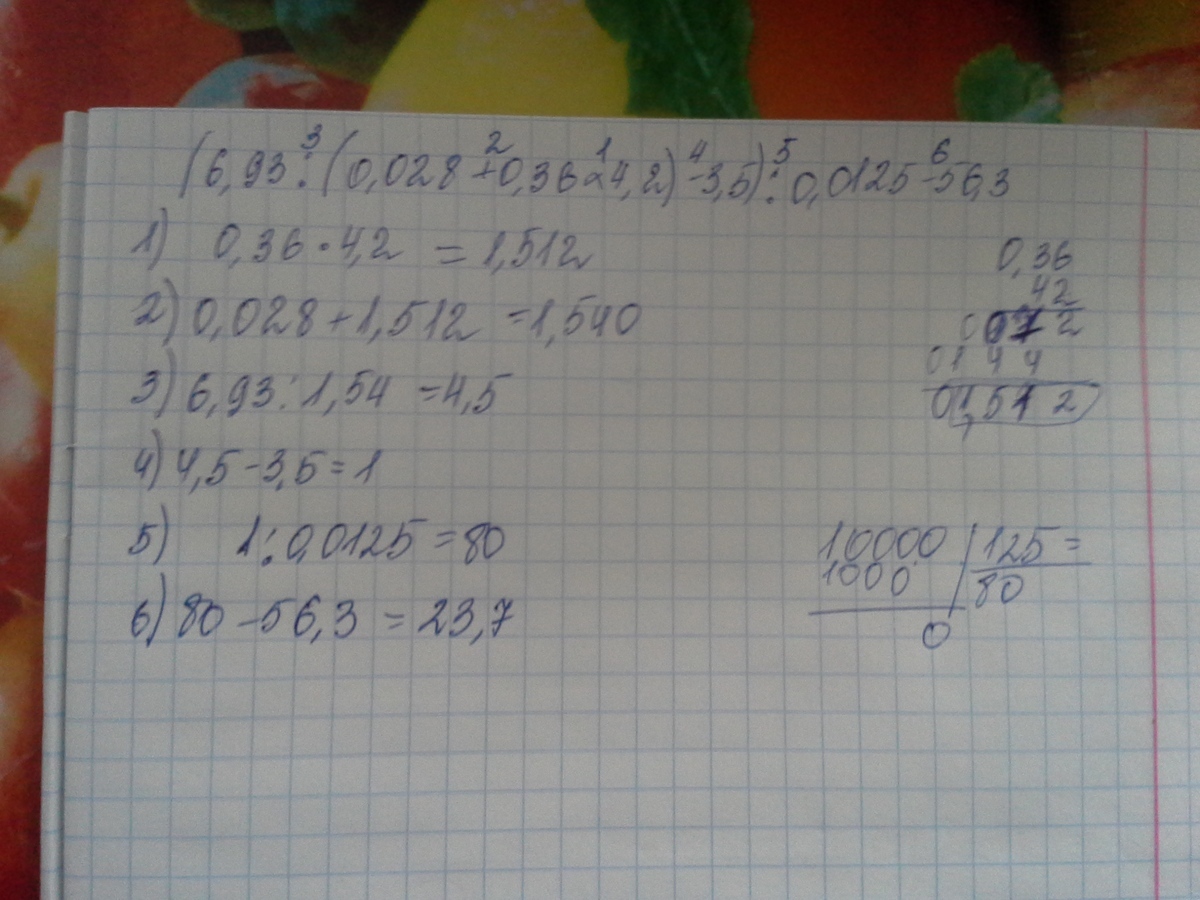 3 2 1 4 5 6
(6,93:(0,028+0,36×4,2)-3,5):0,0125-56,3
1) 0,36·4,2 = 1,512
2) 0,028+1,512 =1,540
3) 6,93:1,54 =4,5
4) 4,5-3,5=1
5) 1:0,0125=80
6) 80-56,3 = 23,7
0,36
42
072
0144
01,512
10000 125=
1000 80
0